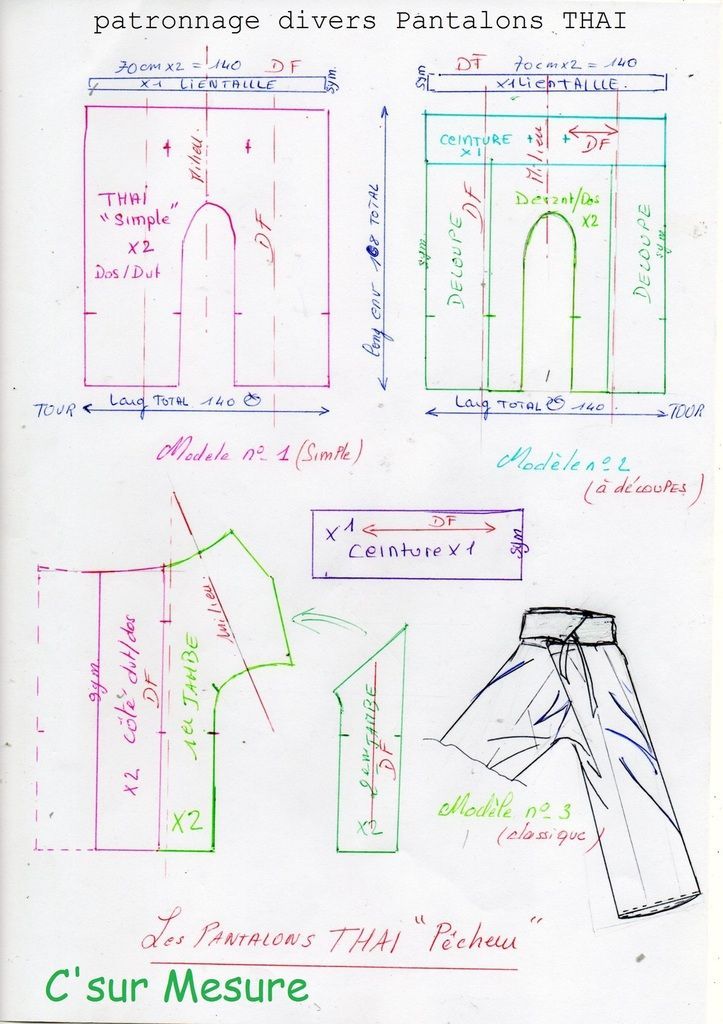 patronnage divers Pantalons THAI
70cm x2 = 140 DF
x1 LIEN TAILLE sym.
Milieu
THAI
"Simple"
x2
Dos/Dvt
DF
TOUR Larg TOTAL 140
Modele nº 1 (Simple)
long env 108 TOTAL
DF 70cm x2 = 140
sym. x1 Lien TAILLE
CEINTURE
x1
Milieu
DF
Devant/Dos
x2
DECOUPE
DF
sym.
DECOUPE
sym.
Larg TOTAL 140 TOUR
Modèle nº 2
(à découpes)
x1 DF
Ceinture x1
sym
sym.
x2 côté dvt/dos
DF
1er JAMBE
x2
milieu.
x2 2em JAMBE
DF
Modèle nº 3
(classique)
Les PANTALONS THAI "Pêcheur"
C'sur Mesure